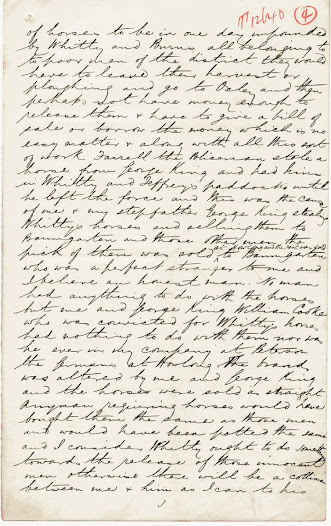 2
4
of horses to be in one day impounded
by Whitty and Burns all belonging to
to poor men of the district they would
have to leave their harvest or
ploughing and go to Oxley and then
perhaps not have money enough to
release them & have to give a bill of
sale or borrow the money which is no
easy matter & along with all this sort
of work Farrell the Policeman stole a
horse from George King and had him
in Whitty and Jeffreys paddocks until
he left the force and this was the cause
of me & my stepfather George King stealing
Whitty's horses and selling them to
Baumgarten and those other men the
pick of them was sold to Baumgarten
who was a perfect stranger to me and
I believe an honest man. No man
had anything to do with the horses
but me and George King William Cooke
who was convicted for Whittys horses
had nothing to do with them nor was
he ever in my company at Peterson
the Germans at Howlong the brand
was altered by me and George King
and the horses were sold as straight
Anyone requiring horses would have
bought them the same as those men
and would have been potted the same
and I consider Whitty ought to do something
towards the release of those innocent
men otherwise there will be a collision
between me & him as I can to his